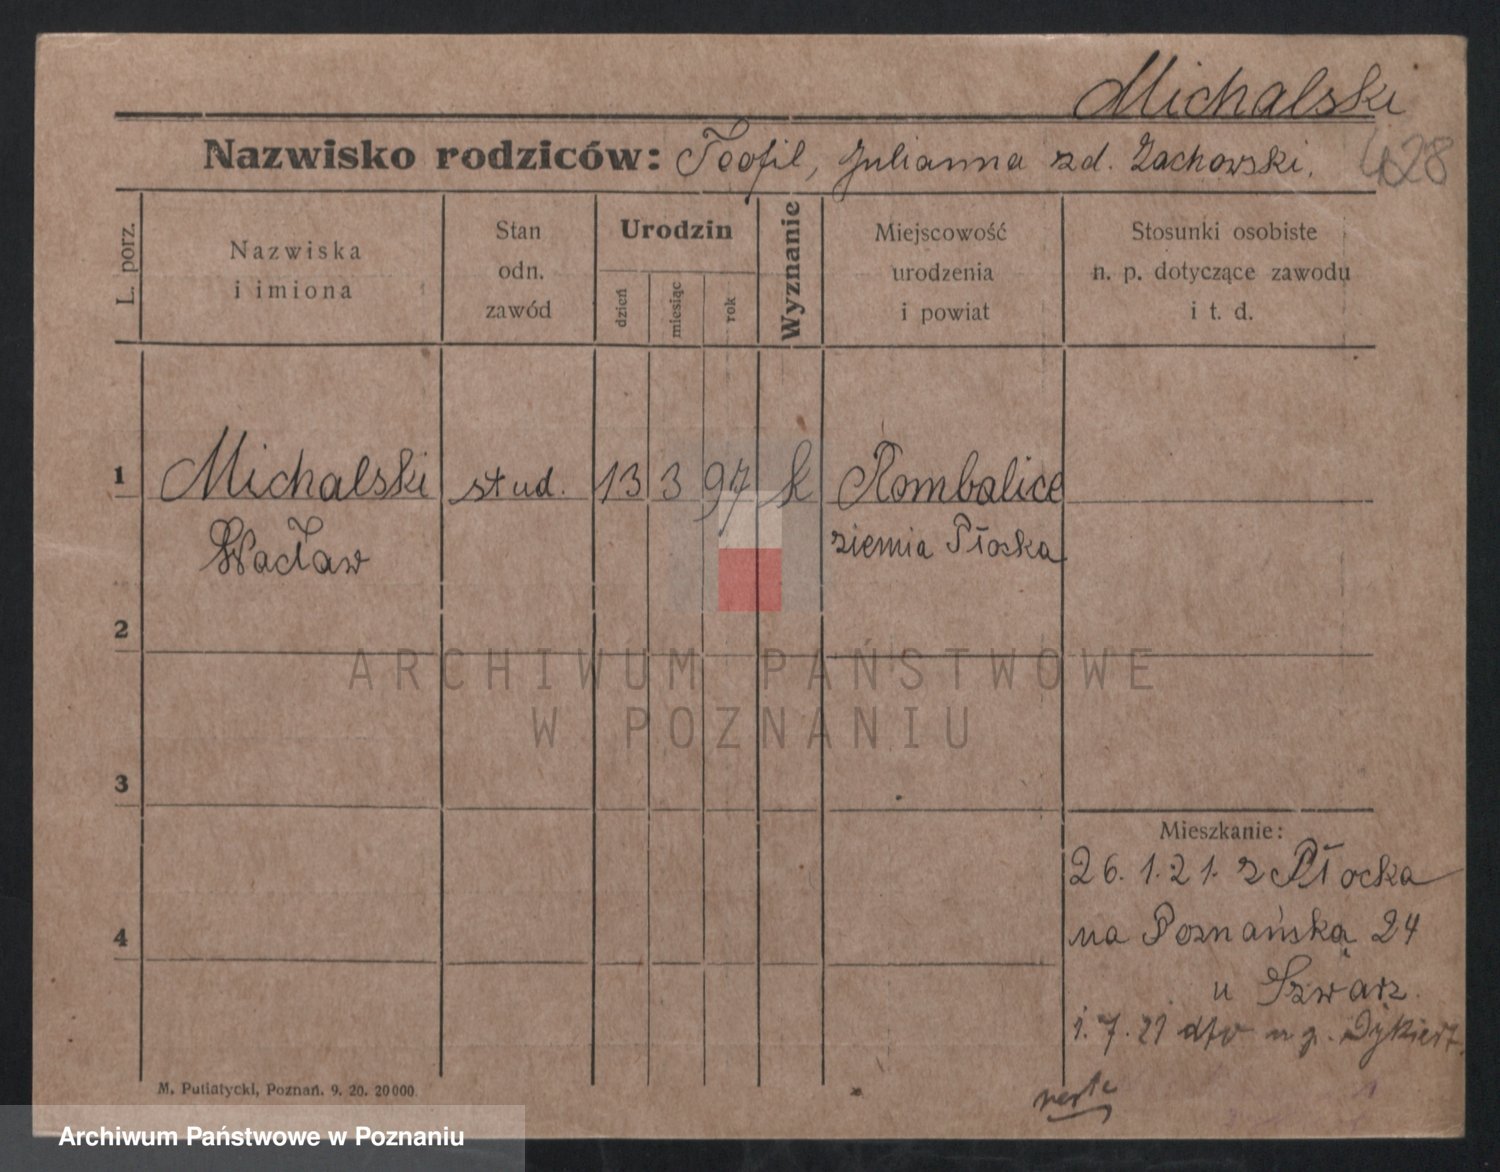 Michalski
Nazwisko rodziców: Teofil, Julianna zd. Zachowski.
L. porz.
Nazwiska
i imiona
Stan
odn.
zawód
Urodzin
dzień
miesiąc
rok
Wyznanie
Miejscowość
urodzenia
i powiat
Stosunki osobiste
n. p. dotyczące zawodu
i t. d.
1 Michalski stud. 13 3 97 k Rombalice
Wacław ziemia Płocka
2
ARCHIWUM PAŃSTWOWE
W POZNANIU
3
4
Mieszkanie:
26. 1. 21. z Płocka
na Poznańską 24
u Szwarz.
1. 7. 21 dto u p. Dykiert.
verte
M. Putiatycki, Poznań. 9. 20. 20000.
Archiwum Państwowe w Poznaniu